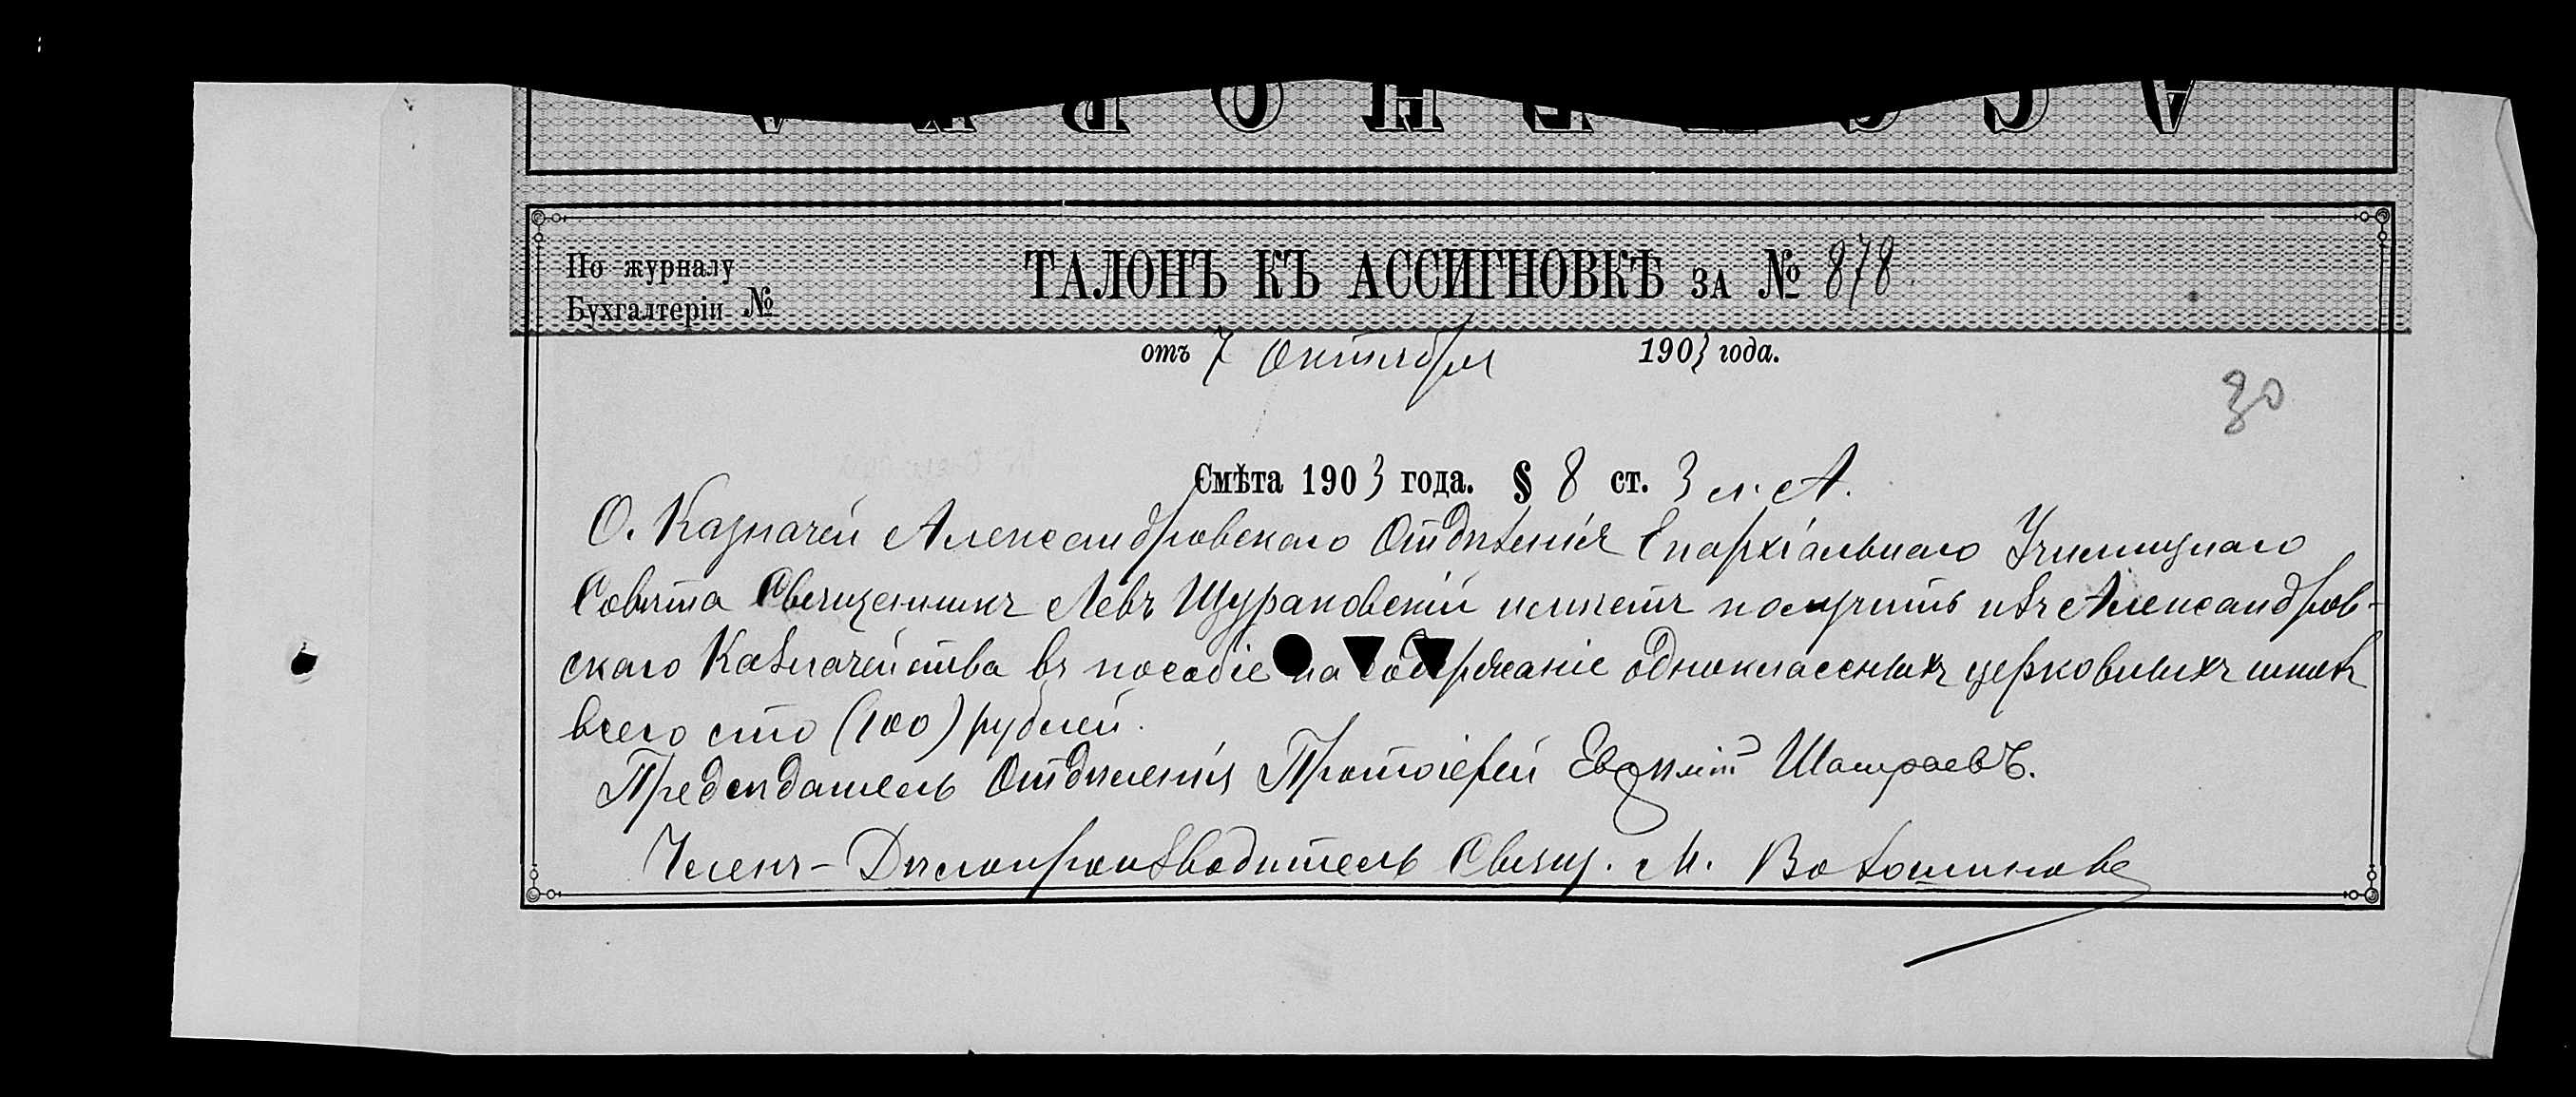 По журналу
Бухгалтеріи №
ТАЛОНЪ КЪ АССИГНОВКѢ ЗА № 878
отъ 7 Октября 1903 года.
30
Смѣта 1903 года. § 8 ст. 3 л. А.
О. Казначей Александровскаго Отдѣленія Епархіальнаго Училищнаго
Совѣта Священникъ Левъ Щураковскій имѣетъ получить изъ Александров-
скаго Казначейства въ пособіе на содержаніе одноклассныхъ церковныхъ школъ
всего сто (100) рублей.
Предсѣдатель Отдѣленія Протоіерей
Членъ-Дѣлопроизводитель Свящ. М.